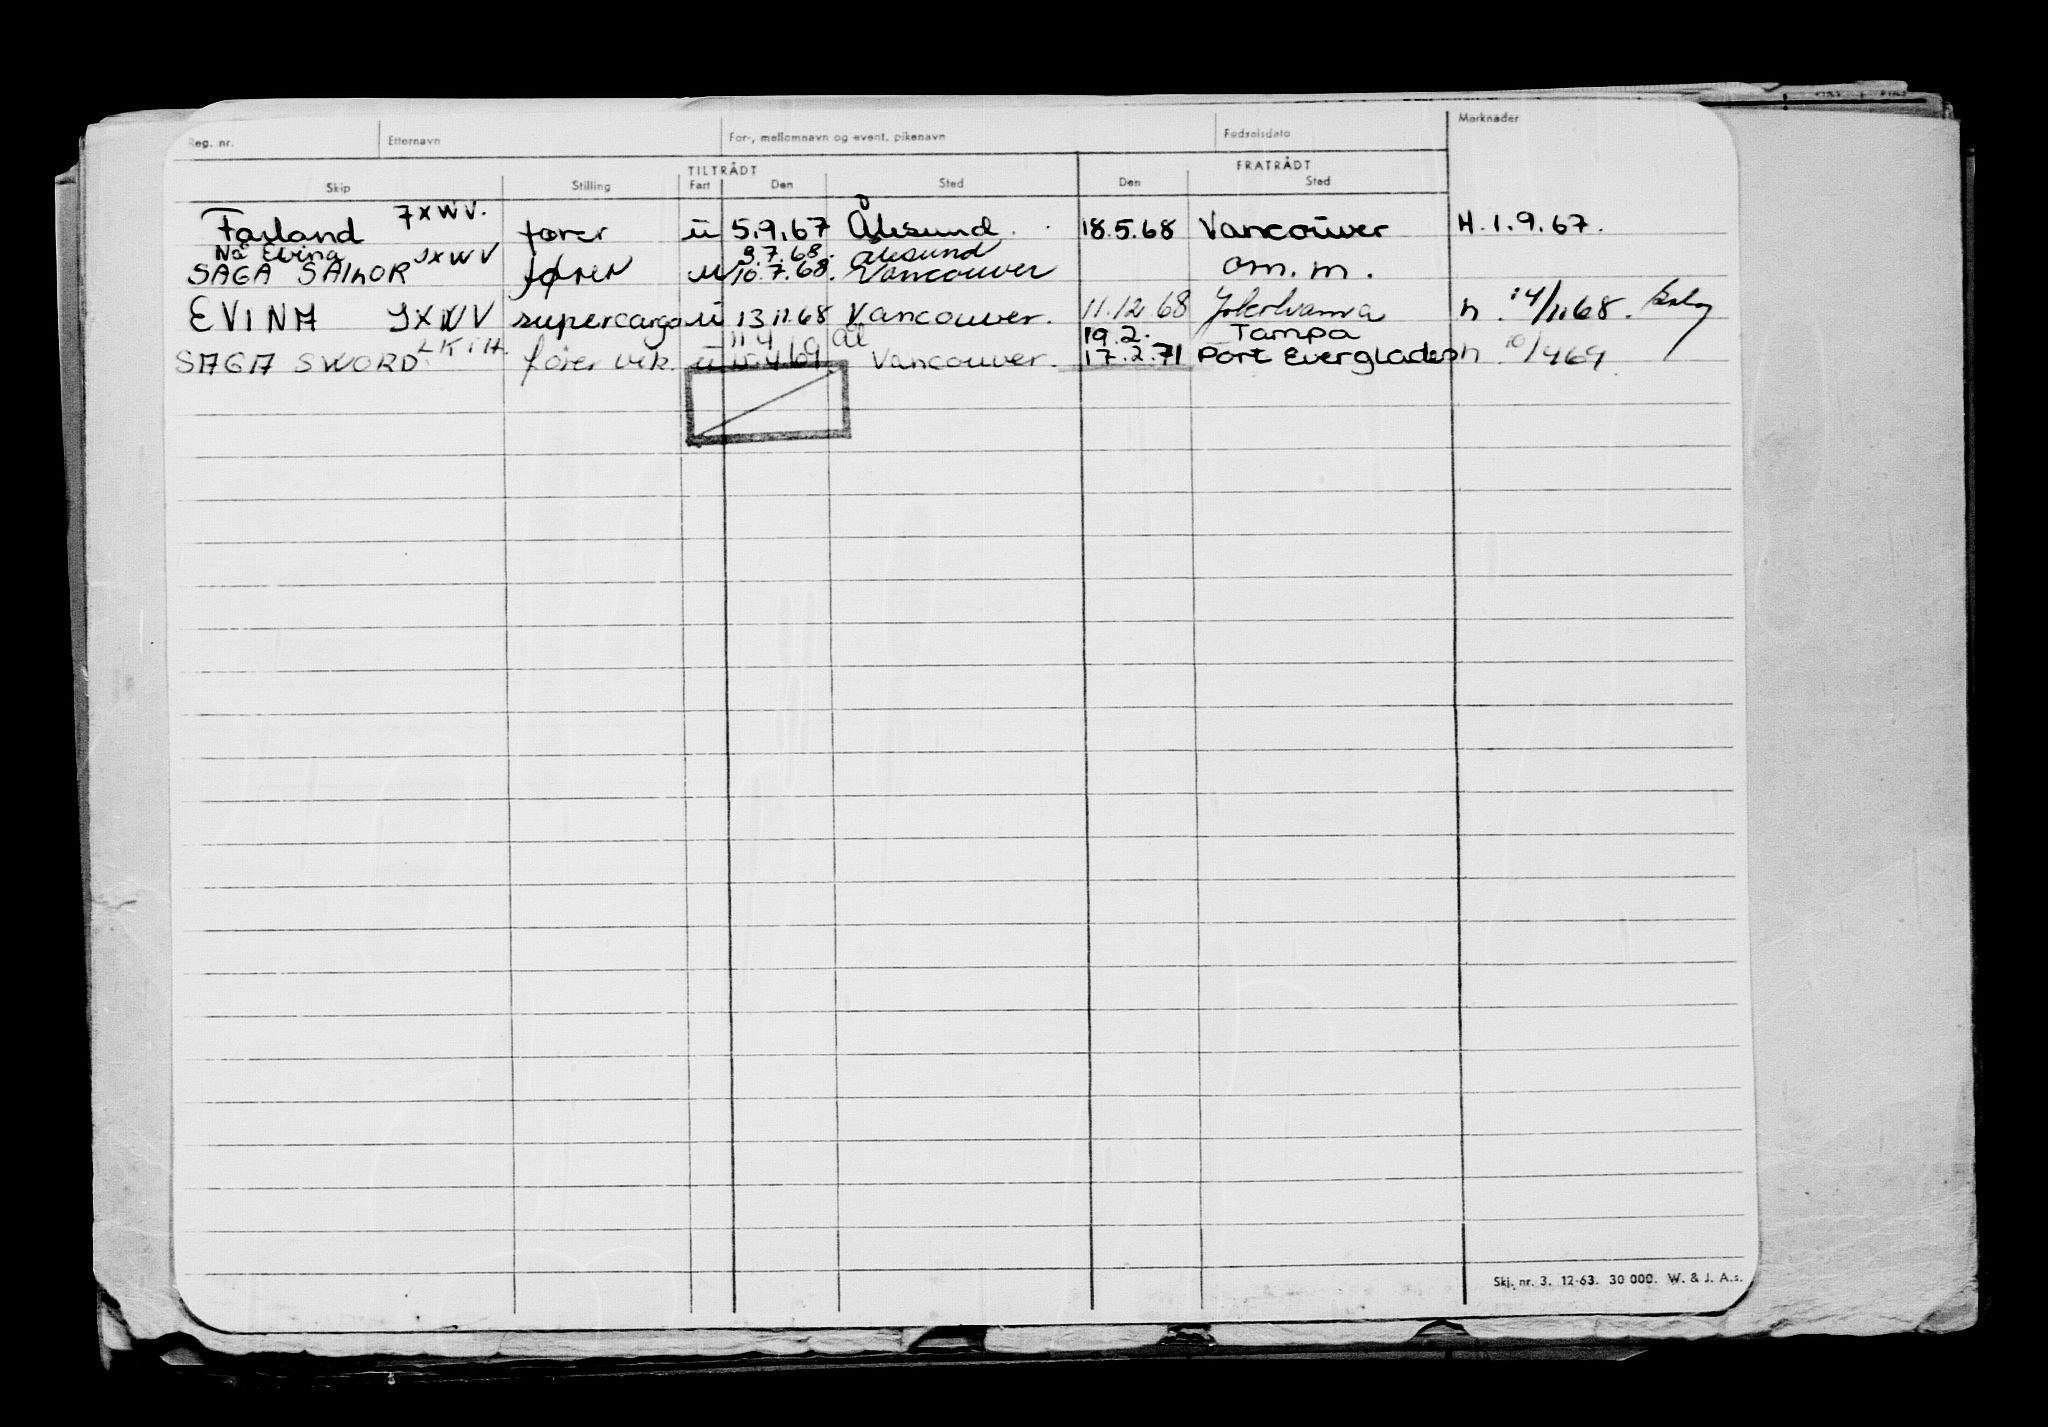 Reg. nr. Etternavn For-, mellomnavn og event. pikenavn Fødselsdato Merknader
TILTRÅDT FRATRÅDT
Skip Stilling Fart Den Sted Den Sted
Farland JXWV. fører u 5.9.67 Ålesund. 18.5.68 Vancouver H. 1.9.67.
Nå Evina JXWV 9.7.68. Ålesund
SAGA SAILOR fører u 10.7.68. Vancouver om.m.
EVINA JXWV supercargo u 13.11.68 Vancouver. 11.12.68 Yokohama h. 14/11.68.
11.4 Ål 19.2. Tampa
SAGA SWORD LKIH. fører vik. u 10.4.69 Vancouver. 17.2.71 Port Everglades h 10/4 69
Skj. nr. 3. 12-63. 30 000. W. & J. A.s.